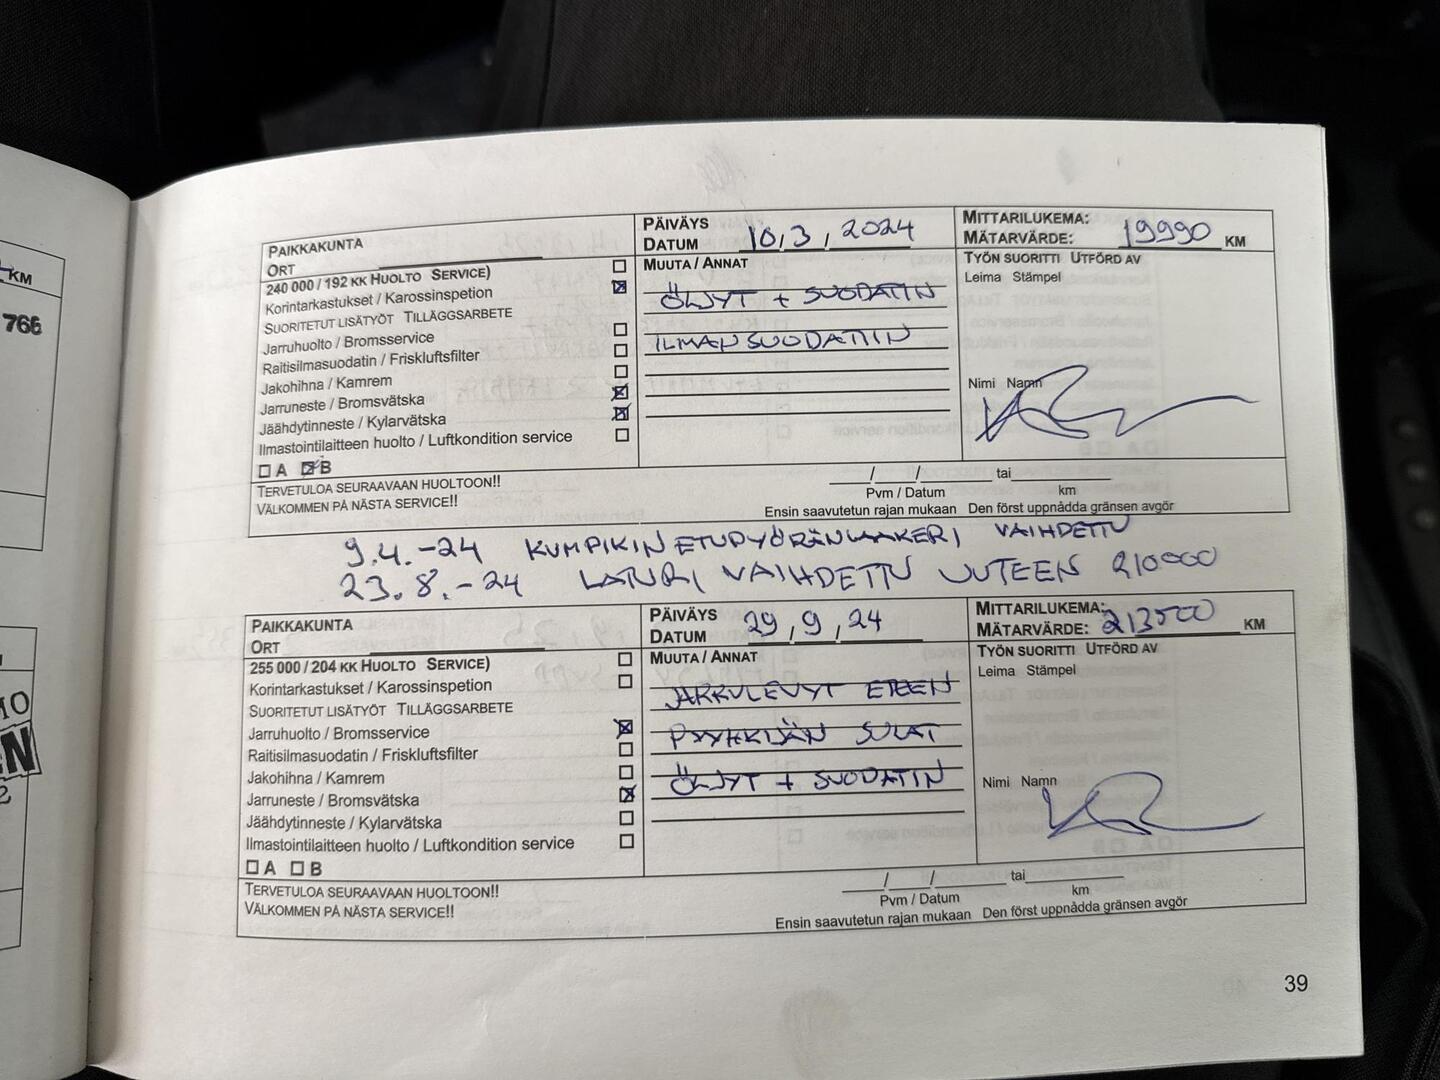 KM
766
10
N
2
PAIKKAKUNTA
ORT
PÄIVÄYS
DATUM 10,3, 2024
MITTARILUKEMA:
MÄTARVÄRDE: 19990 KM
240 000 / 192 KK HUOLTO SERVICE)
Korintarkastukset / Karossinspetion
SUORITETUT LISÄTYÖT TILLÄGGSARBETE
Jarruhuolto / Bromsservice
Raitisilmasuodatin / Friskluftsfilter
Jakohihna / Kamrem
Jarruneste / Bromsvätska
Jäähdytinneste / Kylarvätska
Ilmastointilaitteen huolto / Luftkondition service
A B
MUUTA / ANNAT
ÖLJYT + SUODATIN
ILMANSUODATIN
TYÖN SUORITTI UTFÖRD AV
Leima Stämpel
Nimi Namn
TERVETULOA SEURAAVAAN HUOLTOON!!
VÄLKOMMEN PÅ NÄSTA SERVICE!!
/ / tai
Pvm / Datum km
Ensin saavutetun rajan mukaan Den först uppnådda gränsen avgör
9.4.-24 KUMPIKIN ETUPYÖRÄNLAAKERI VAIHDETTU
23.8.-24 LATURI VAIHDETTU UUTEEN 210000
PAIKKAKUNTA
ORT
PÄIVÄYS
DATUM 29,9,24
MITTARILUKEMA:
MÄTARVÄRDE: 213500 KM
255 000 / 204 KK HUOLTO SERVICE)
Korintarkastukset / Karossinspetion
SUORITETUT LISÄTYÖT TILLÄGGSARBETE
Jarruhuolto / Bromsservice
Raitisilmasuodatin / Friskluftsfilter
Jakohihna / Kamrem
Jarruneste / Bromsvätska
Jäähdytinneste / Kylarvätska
Ilmastointilaitteen huolto / Luftkondition service
A B
MUUTA / ANNAT
JARRULEVYT ETEEN
PYYHKIJÄN SULAT
ÖLJYT + SUODATIN
TYÖN SUORITTI UTFÖRD AV
Leima Stämpel
Nimi Namn
TERVETULOA SEURAAVAAN HUOLTOON!!
VÄLKOMMEN PÅ NÄSTA SERVICE!!
/ / tai
Pvm / Datum km
Ensin saavutetun rajan mukaan Den först uppnådda gränsen avgör
39